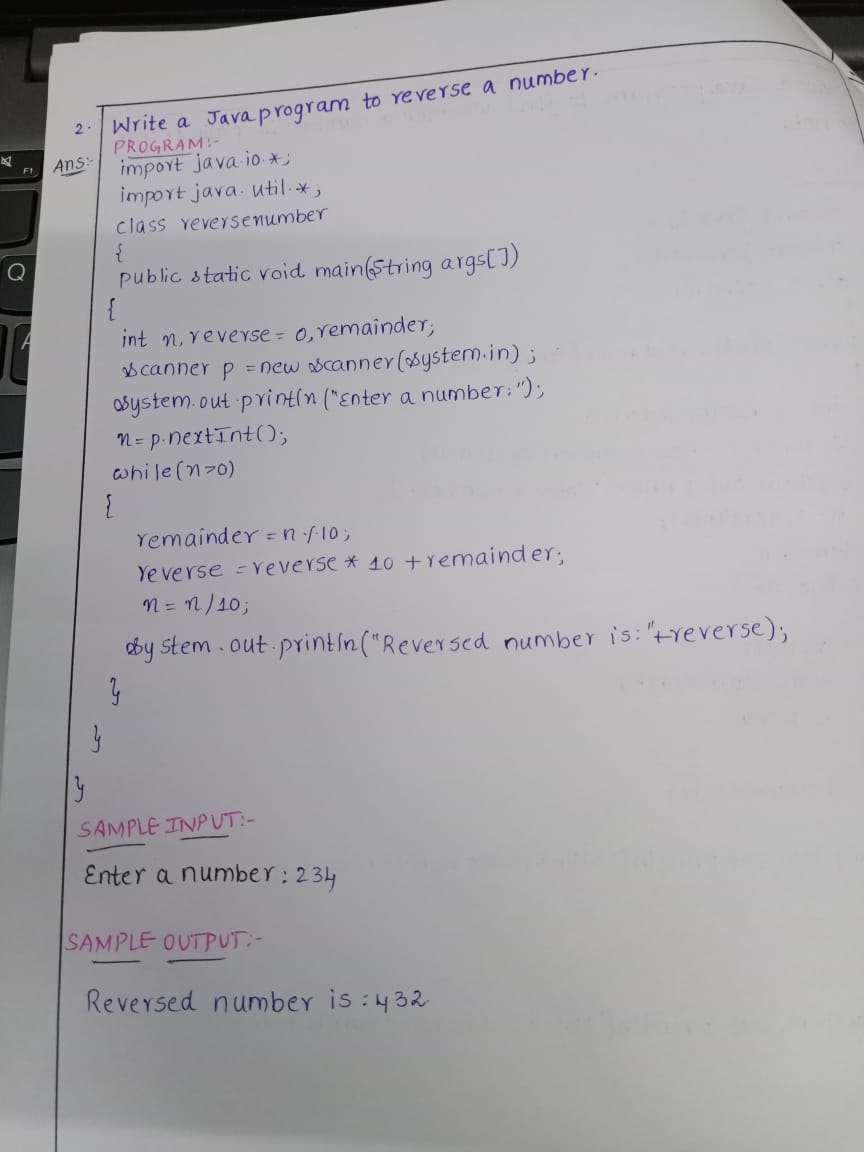 2. Write a Java program to reverse a number.
PROGRAM:-
Ans:- import java.io.*;
import java.util.*;
class reversenumber
{
public static void main(String args[])
{
int n, reverse = 0, remainder;
Scanner p = new Scanner(System.in);
System.out.println("Enter a number:");
n = p.nextInt();
while(n>0)
{
remainder = n % 10;
reverse = reverse * 10 + remainder;
n = n/10;
System.out.println("Reversed number is:"+reverse);
}
}
}
SAMPLE INPUT:-
Enter a number: 234
SAMPLE OUTPUT:-
Reversed number is : 432
F1
Q
A